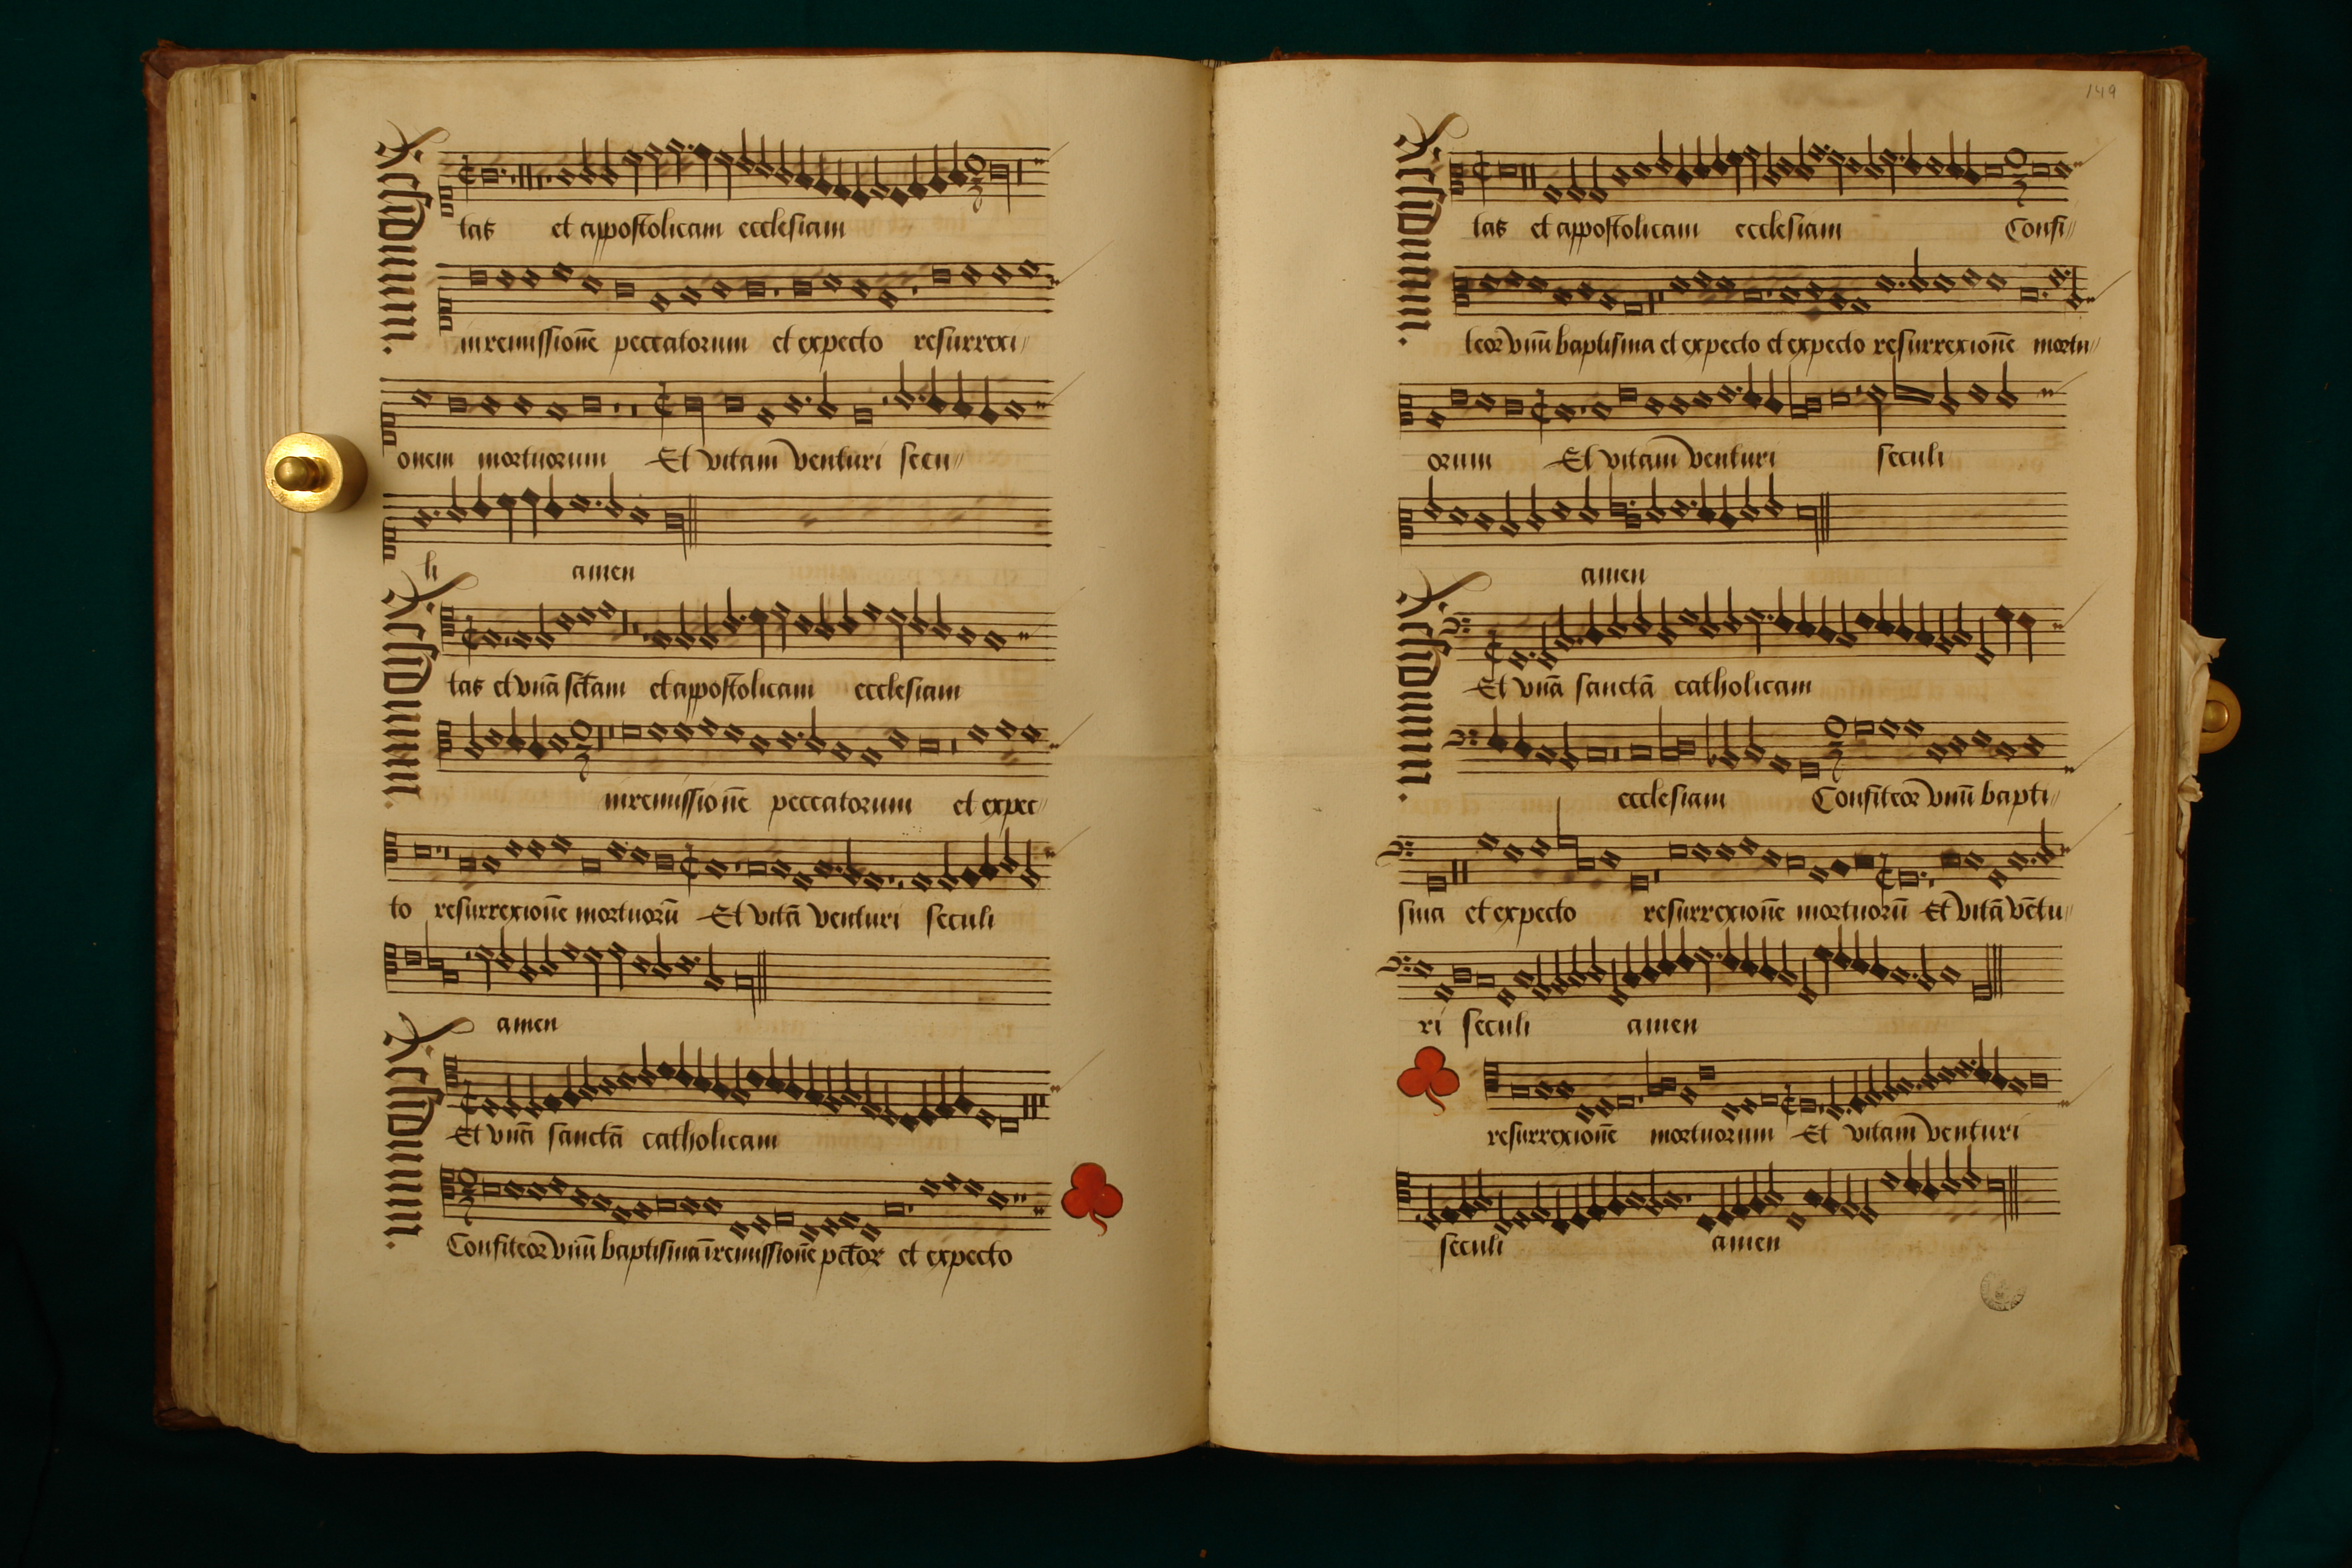 Residuum.
tas et appostolicam ecclesiam
in remissionē peccatorum et expecto resurrexi//
onem mortuorum Et vitam venturi secu//
li amen
Residuum.
tas et vnā sctam et appostolicam ecclesiam
in remissionē peccatorum et expec//
to resurrexionē mortuorū Et vitā venturi seculi
amen
Residuum.
Et vnā sanctā catholicam
Confiteor vnū baptisma ī remissionē pctor et expecto
149
Residuum.
tas et appostolicam ecclesiam Confi//
teor vnū baptisma et expecto et expecto resurrexionē mortu//
orum Et vitam venturi seculi
amen
Residuum.
Et vnā sanctā catholicam
ecclesiam Confiteor vnū bapti//
sma et expecto resurrexionē mortuorū Et vitā vētu//
ri seculi amen
resurrexionē mortuorum Et vitam venturi
seculi amen